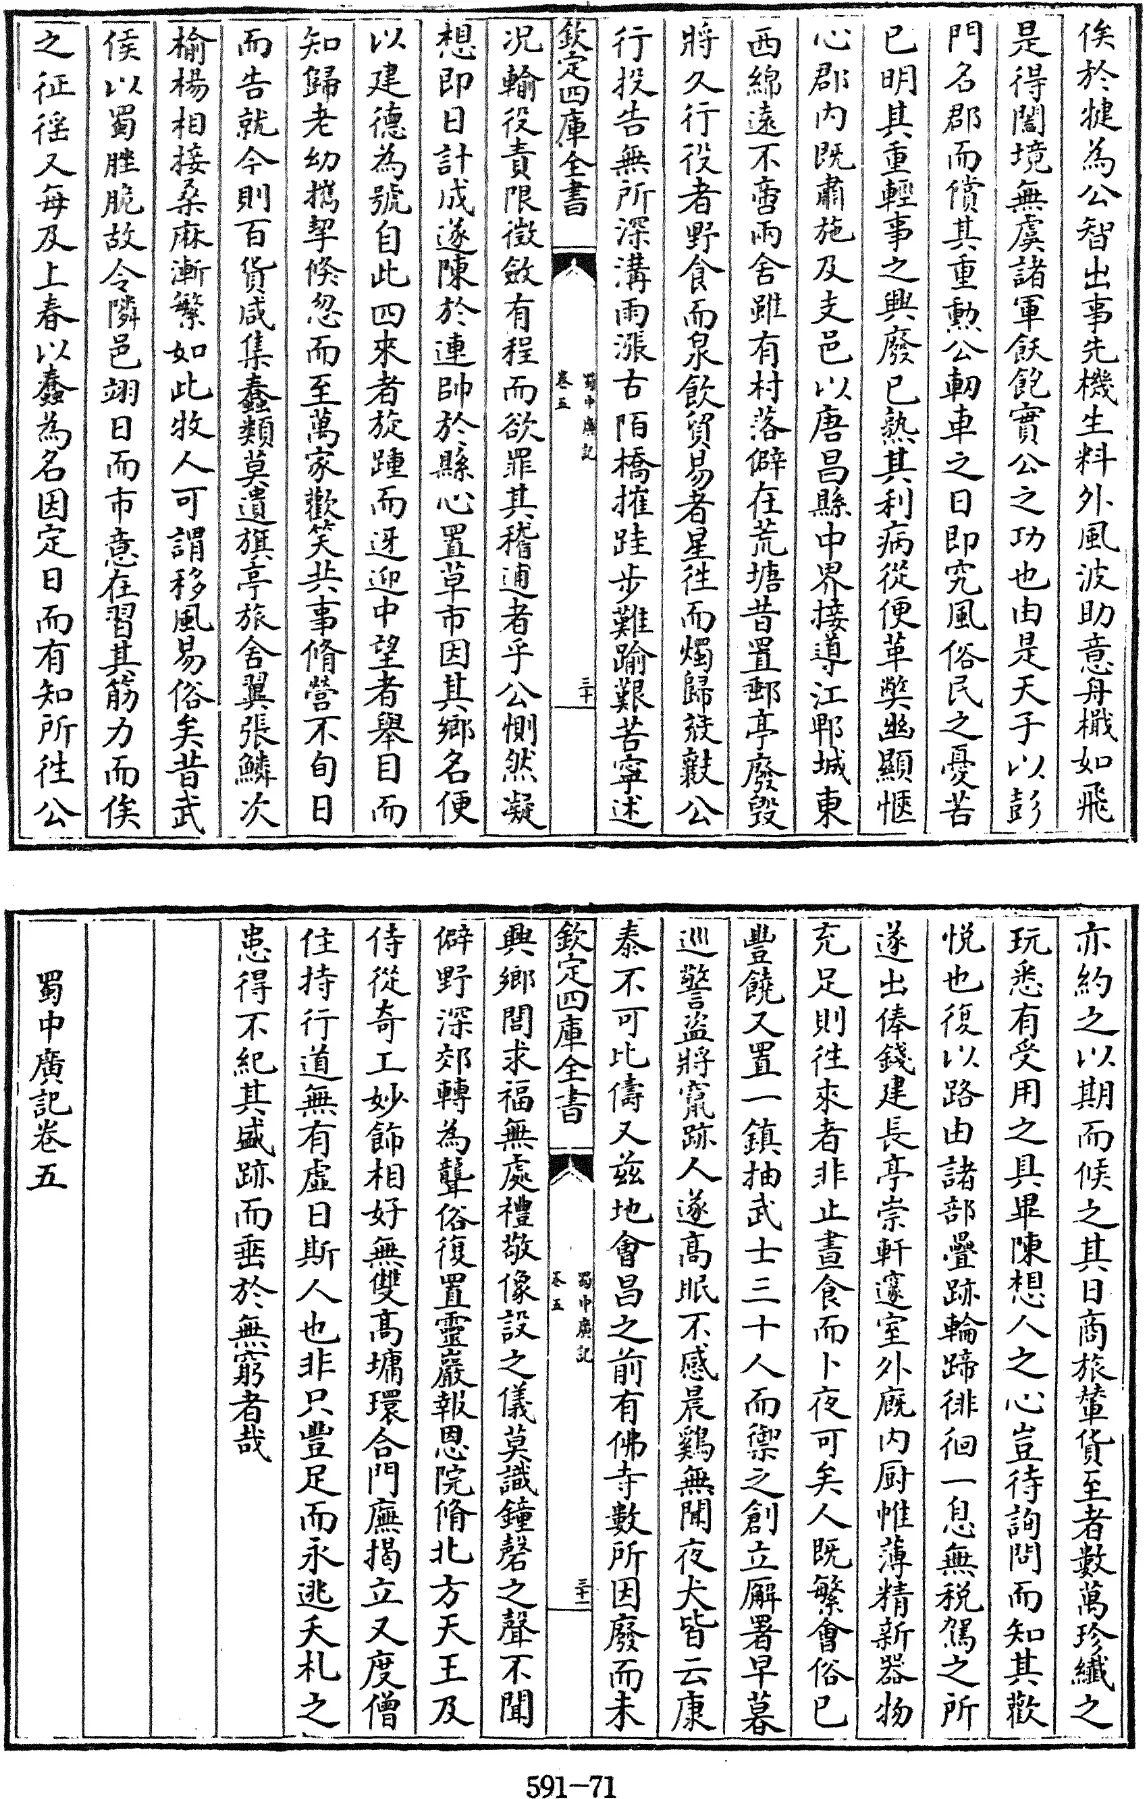 俟於犍為公智出事先機生料外風波助意舟檝如飛
是得闔境無虞諸軍飫飽實公之功也由是天子以彭
門名郡而償其重勲公軔車之日即究風俗民之憂苦
已明其重輕事之興廢已熟其利病從便革獘幽顯愜
心郡內既肅施及支邑以唐昌縣中界接導江郫城東
西綿遠不啻兩舍雖有村落僻在荒塘昔置郵亭廢毀
將久行役者野食而泉飲貿易者星徃而燭歸發歎公
行投告無所深溝雨漲古陌橋摧跬步難踰艱苦寧述
欽定四庫全書
蜀中廣記
卷五
三十
况輸役責限徵斂有程而欲罪其稽逋者乎公惻然凝
想即日計成遂陳於連帥於縣心置草市因其鄉名便
以建德為號自此四來者旋踵而迓迎中望者舉目而
知歸老幼攜挈倏忽而至萬家歡笑共事脩營不旬日
而告就今則百貨咸集蠢類莫遺旗亭旅舍翼張鱗次
榆楊相接桑麻漸繁如此牧人可謂移風易俗矣昔武
侯以蜀脞脆故令隣邑翊日而市意在習其筋力而俟
之征徭又每及上春以蠶為名因定日而有知所徃公
亦約之以期而候之其日商旅輦貨至者數萬珍纖之
玩悉有受用之具畢陳想人之心豈待詢問而知其歡
悅也復以路由諸部疊跡輪蹄徘徊一息無稅駕之所
遂出俸錢建長亭崇軒邃室外厩內厨帷薄精新器物
充足則徃來者非止晝食而卜夜可矣人既繁會俗已
豐饒又置一鎮抽武士三十人而禦之創立廨署早暮
巡警盜將竄跡人遂高眠不感晨鷄無聞夜犬皆云康
泰不可比儔又兹地會昌之前有佛寺數所因廢而未
欽定四庫全書
蜀中廣記
卷五
三十一
興鄉閭求福無處禮敬像設之儀莫識鐘磬之聲不聞
僻野深郊轉為聾俗復置靈巖報恩院脩北方天王及
侍從奇工妙飾相好無雙高墉環合門廡揭立又度僧
住持行道無有虛日斯人也非只豐足而永逃夭札之
患得不紀其盛跡而垂於無窮者哉
蜀中廣記卷五
591-71